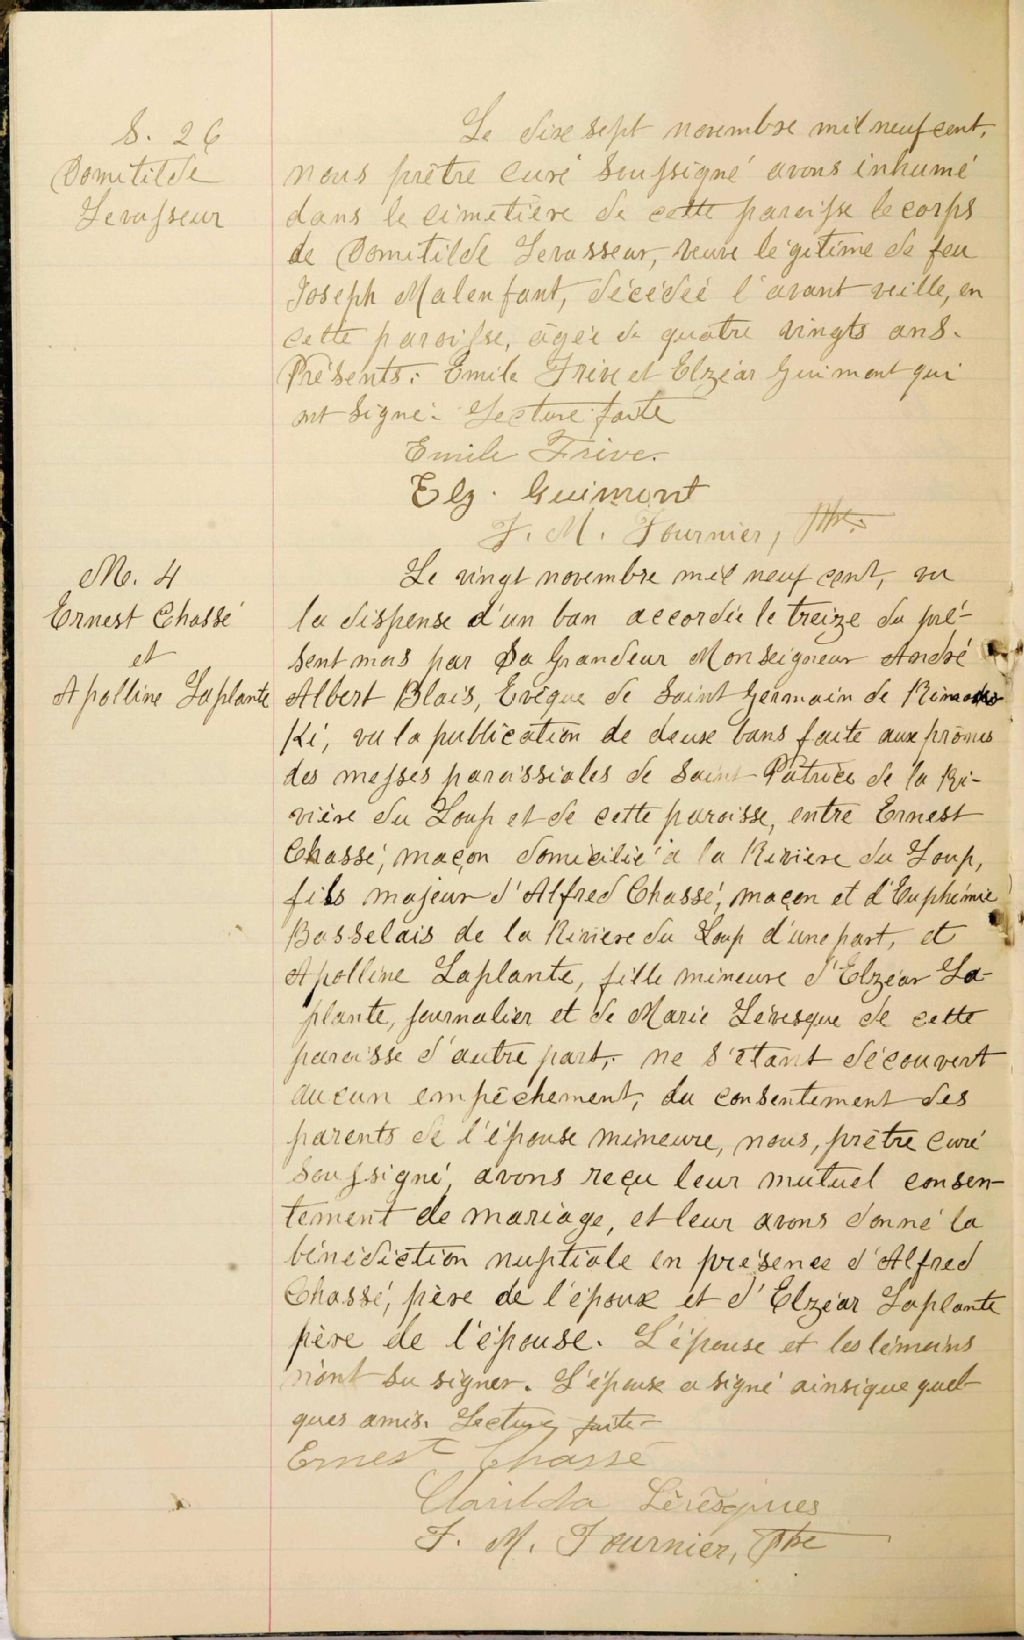 S. 26
Domitilde
Levasseur
Le dix sept novembre mil neuf cent,
nous prêtre curé soussigné avons inhumé
dans le cimetière de cette paroisse le corps
de Domitilde Levasseur, veuve légitime de feu
Joseph Malenfant, décédée l'avant veille, en
cette paroisse, agée de quatre vingts ans.
Présents: Emile Frive et Elzéar Guimont qui
ont signé. Lecture faite
Emile Frive.
Elz. Guimont
F. M. Fournier, Ptre.
M. 4
Ernest Chassé
et
Apolline Laplante
Le vingt novembre mil neuf cent, vu
la dispense d'un ban accordée le treize du pré-
sent mois par Sa Grandeur Monseigneur André
Albert Blais, Evêque de Saint Germain de Rimous-
Ki, vu la publication de deux bans faite aux prônes
des messes paroissiales de Saint Patrice de la Ri-
vière du Loup et de cette paroisse, entre Ernest
Chassé, maçon domicilié à la Rivière du Loup,
fils majeur d'Alfred Chassé, maçon et d'Euphémie
Basselais de la Rivière du Loup d'une part, et
Apolline Laplante, fille mineure d'Elzéar La-
plante, journalier et de Marie Lévesque de cette
paroisse d'autre part, ne s'étant découvert
aucun empêchement, du consentement des
parents de l'épouse mineure, nous, prêtre curé
soussigné, avons reçu leur mutuel consen-
tement de mariage, et leur avons donné la
bénédiction nuptiale en présence d'Alfred
Chassé, père de l'époux et d'Elzéar Laplante
père de l'épouse. L'épouse et les témoins
n'ont su signer. L'époux a signé ainsi que quel-
ques amis. Lecture faite-
Ernest Chassé
Clarilda Lévesques
F. M. Fournier, Ptre